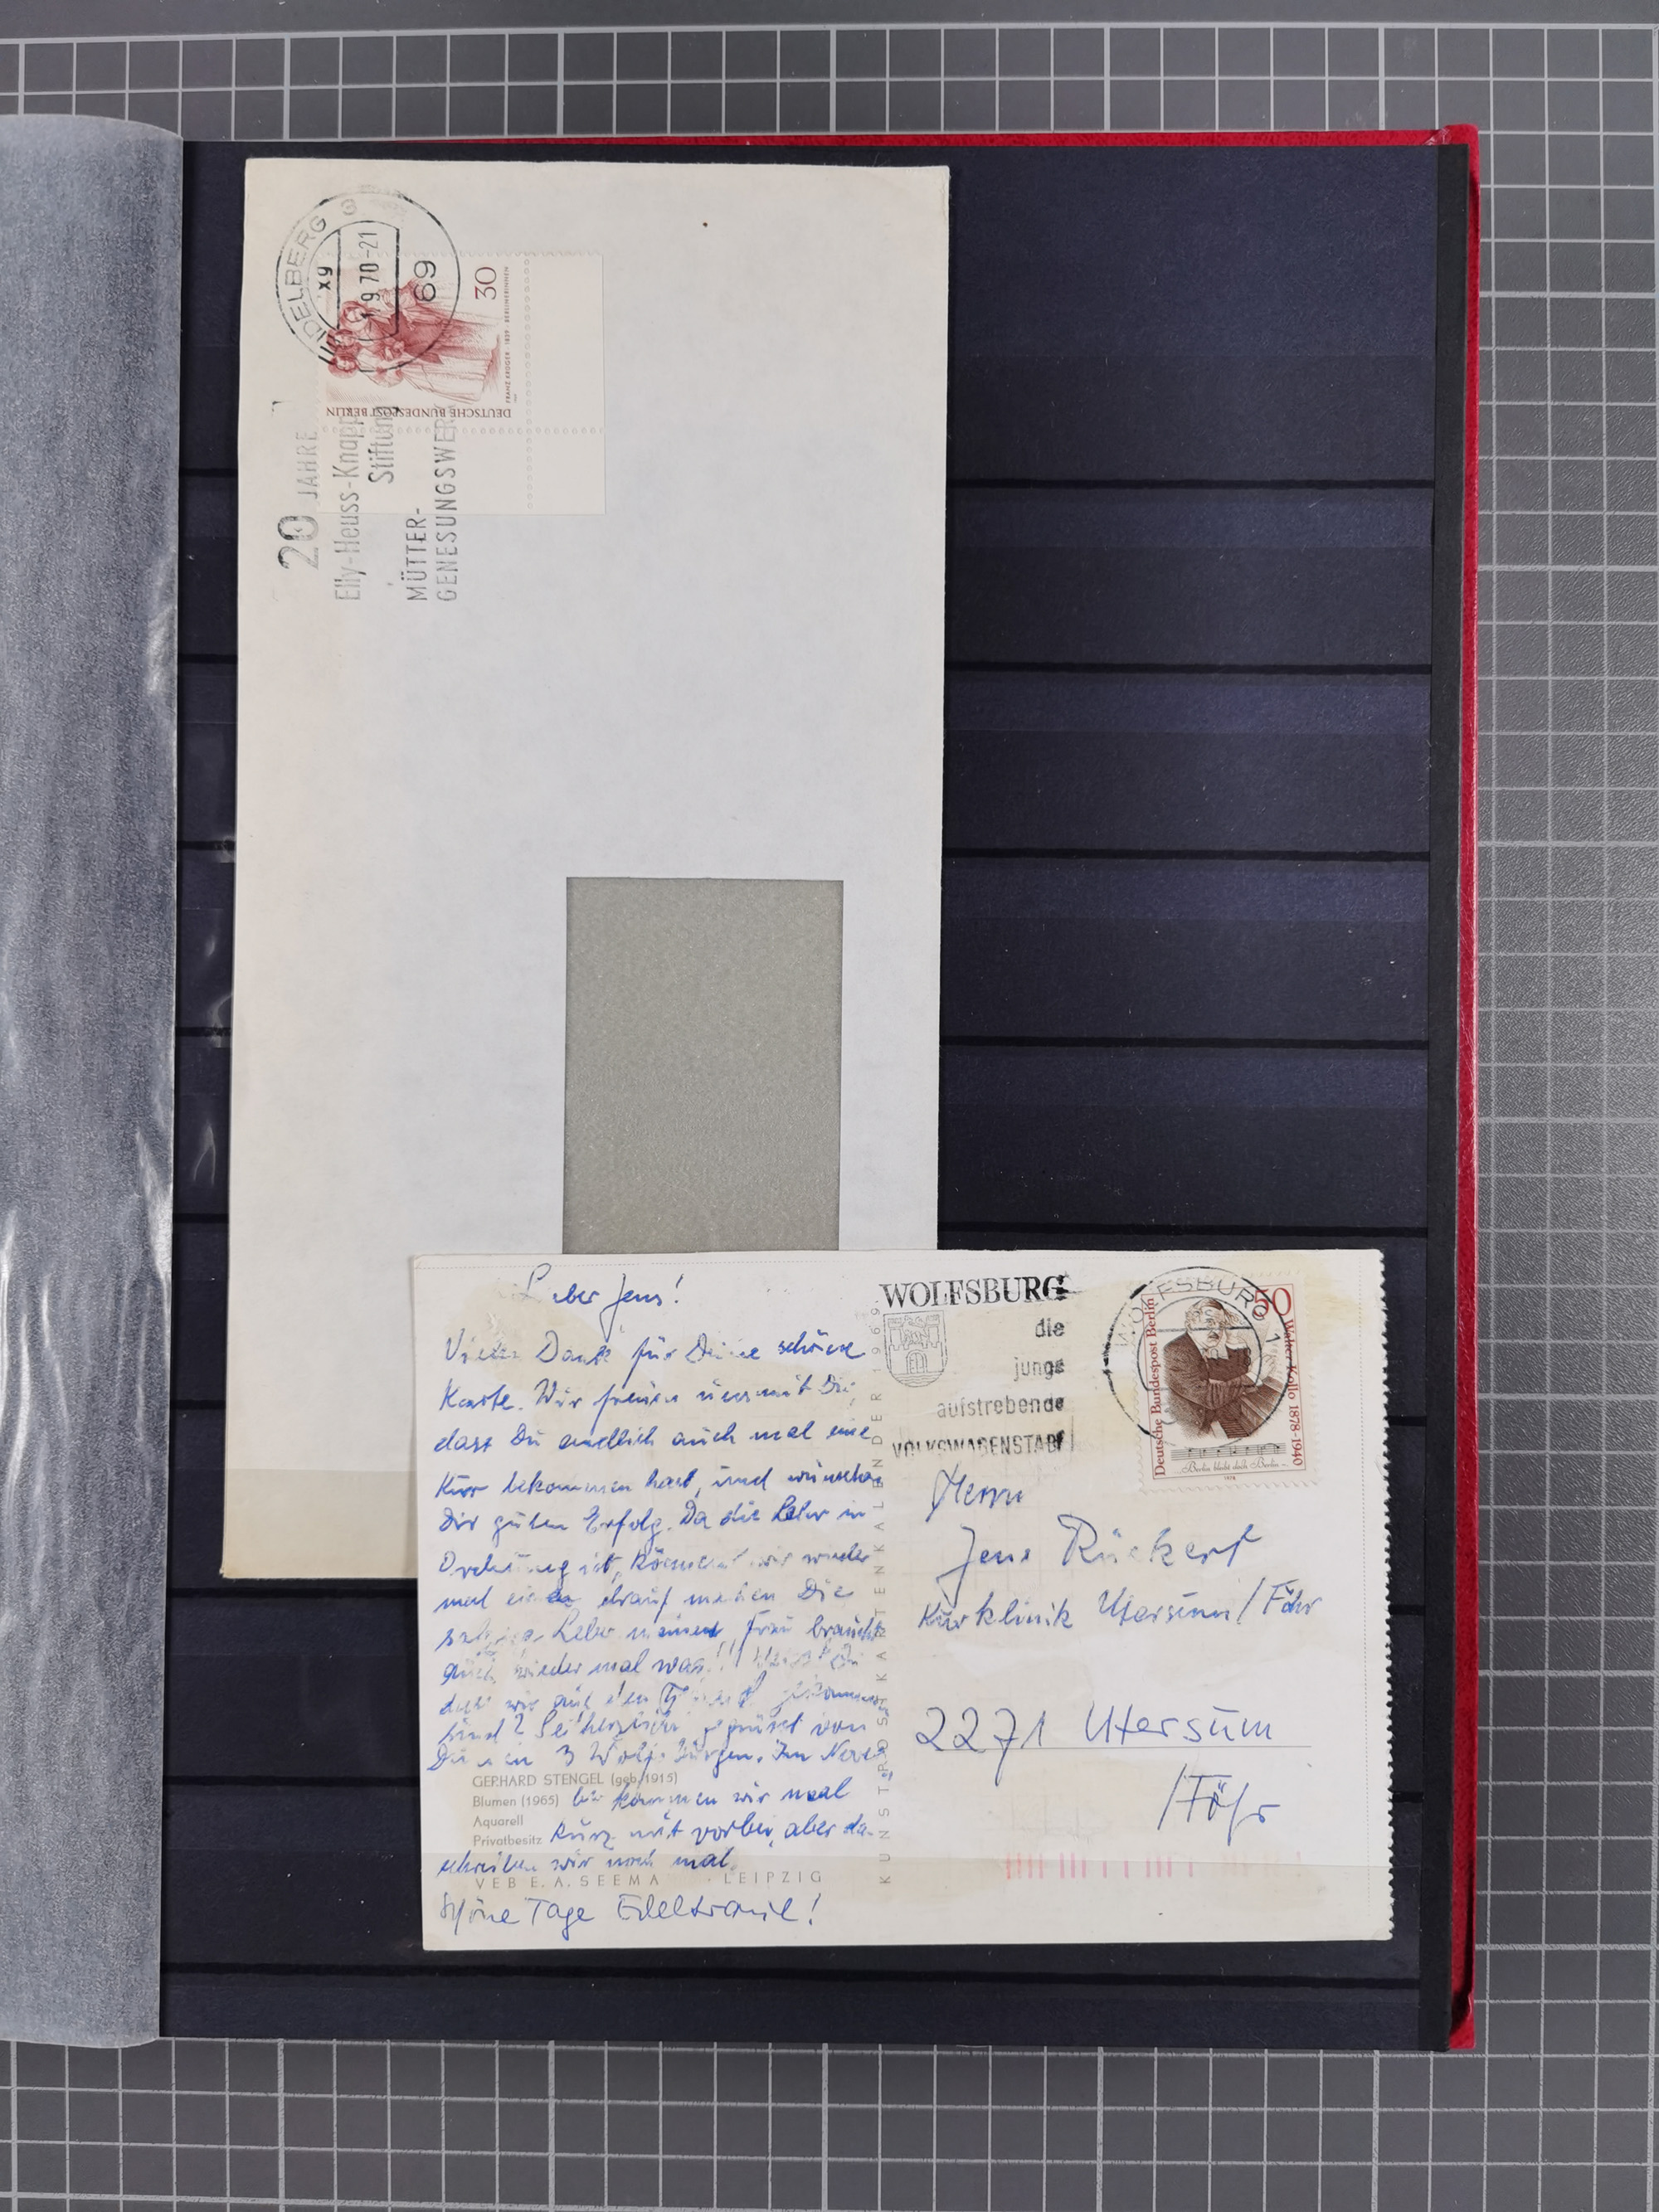 HEIDELBERG
xg
9.70-21
69
30
FRANZ KRÜGER · 1839 · BERLINERINNEN
DEUTSCHE BUNDESPOST BERLIN
20 JAHRE
Elly-Heuss-Knapp
Stiftung
MÜTTER-
GENESUNGSWERK
Lieber Jens!
Vielen Dank für Deine schöne
Karte. Wir freuen uns mit Dir,
dass Du endlich auch mal eine
Kur bekommen hast, und wünschen
Dir guten Erfolg. Da die Leber in
Ordnung ist, können wir wieder
mal einen drauf machen. Die
Leber meiner Frau braucht
auch wieder mal was!!! Weisst Du
dass wir auf den gekommen
sind? Sei herzlich gegrüsst von
Deinen 3 Wolfsbürgern. Im
GERHARD STENGEL (geb. 1915)
Blumen (1965)
Aquarell
Privatbesitz
kommen wir mal
kurz mit vorbei, aber da
schreiben wir noch mal.
VEB E. A. SEEMANN · LEIPZIG
Schöne Tage Edeltraud!
KUNSTKARTENKALENDER 1969
WOLFSBURG
die
junge
aufstrebende
VOLKSWAGENSTADT
WOLFSBURG 1
50
Deutsche Bundespost Berlin
Walter Kollo 1878-1940
„Berlin bleibt doch Berlin“
1978
Herrn
Jens Rückert
Kurklinik Utersum/Föhr
2271 Utersum
/Föhr